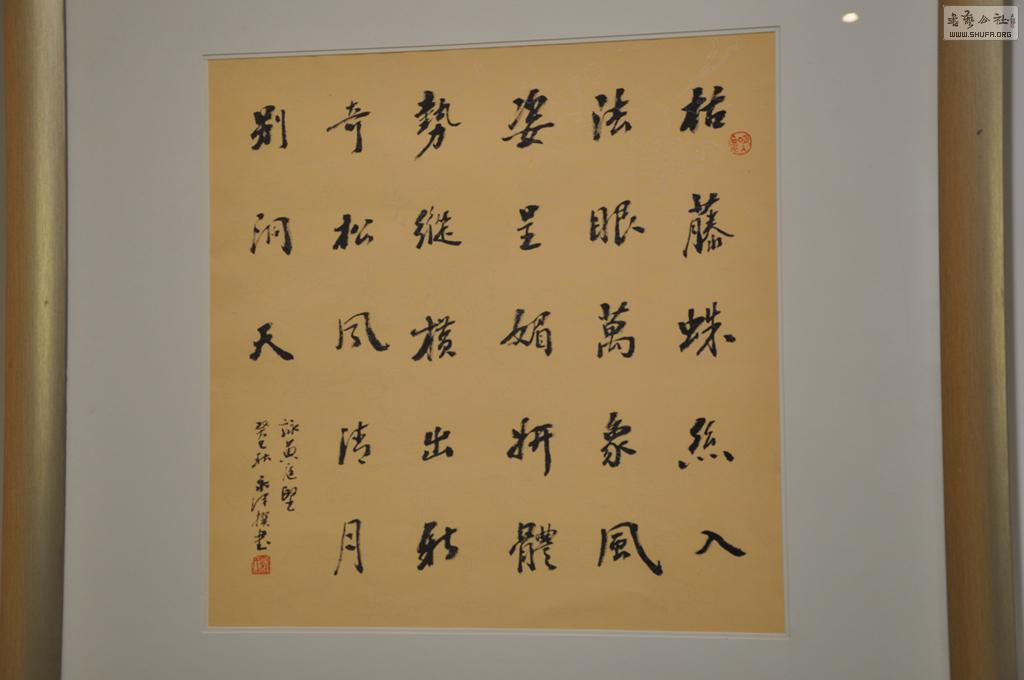 枯藤蛛絲入
法眼萬象風
姿呈媚妍體
勢縱橫出新
奇松風清月
別洞天
詠黃庭堅
癸巳秋永津撰書
書艺公社
WWW.SHUFA.ORG